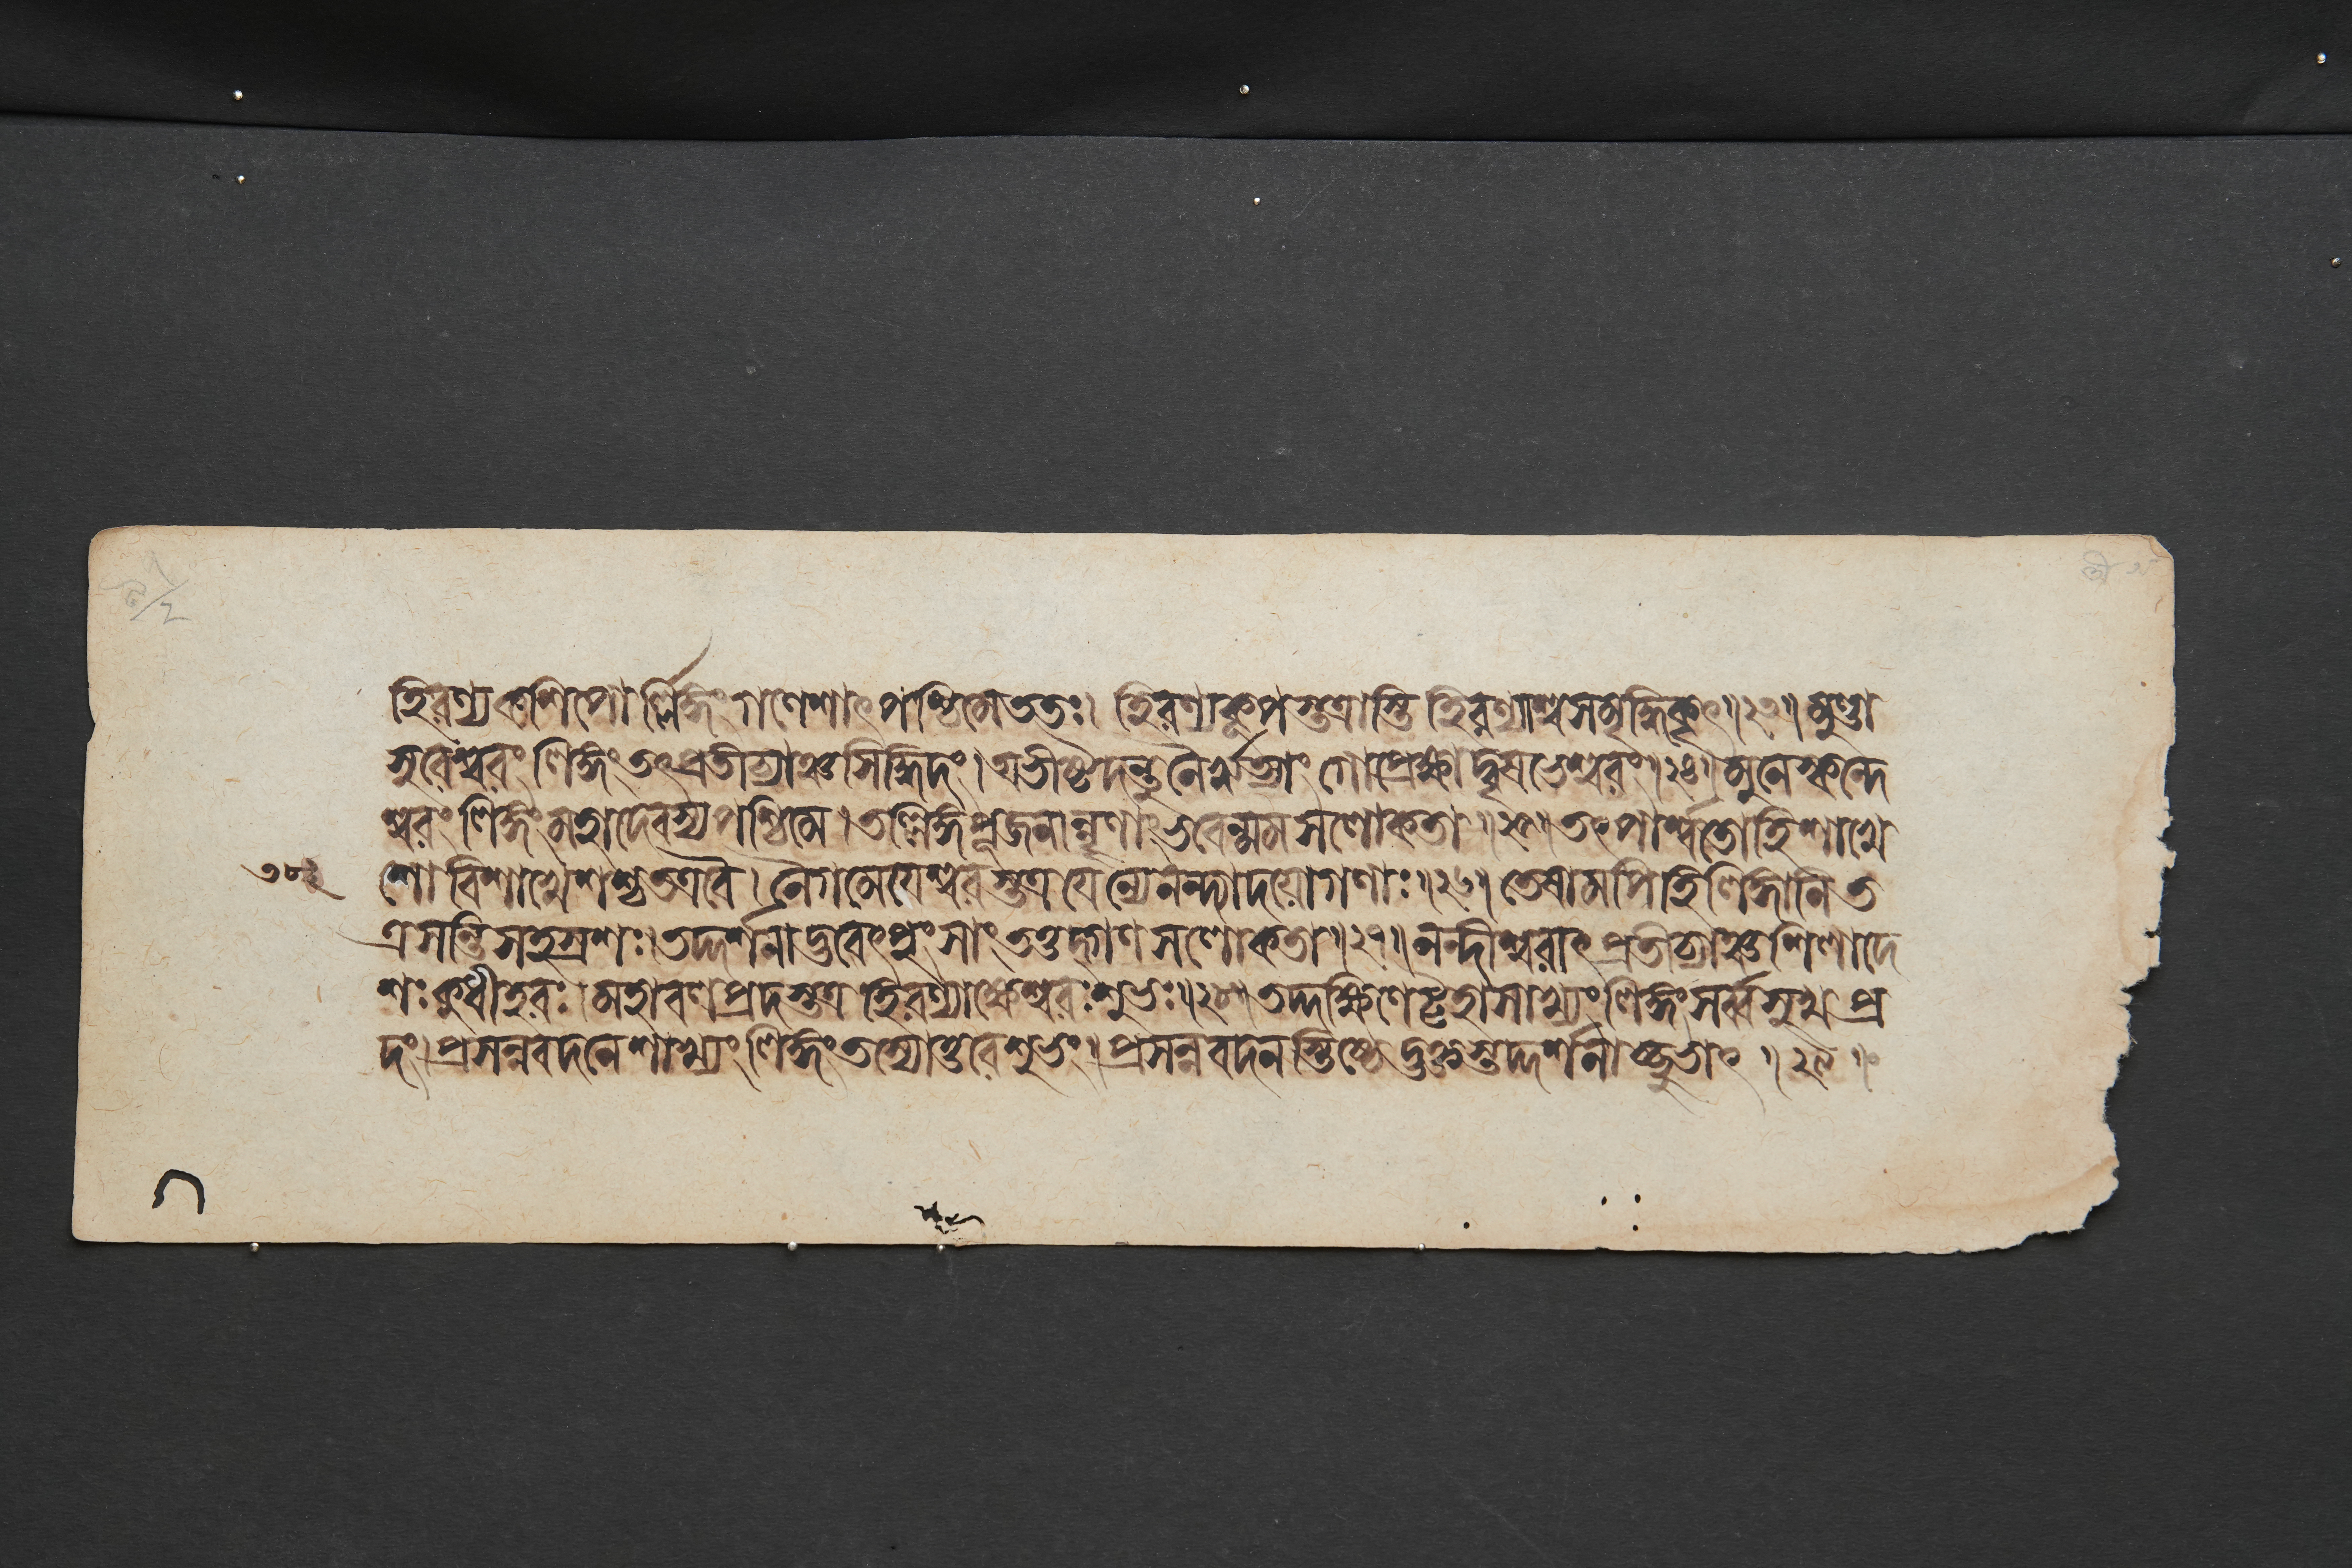 হিরণ্যকশিপোর্ল্লিঙ্গং গণেশাৎপশ্চিমেততঃ। হিরণ্যকূপস্তত্রাস্তি হিরণ্যাশ্বসমৃদ্ধিকৃৎ॥২৩॥ মুণ্ডা
সুরেশ্বরং লিঙ্গং তৎপ্রতীচ্যাঞ্চসিদ্ধিদং। অভীষ্টদন্তুনৈরৃত্যাং গোপ্রেক্ষাদ্বৃষভেশ্বরং॥২৪॥ মুনেস্কন্দে
শ্বরং লিঙ্গং মহাদেবস্যপশ্চিমে। তল্লিঙ্গপূজনান্নৃণাং ভবেন্মমসলোকতা॥২৫॥ তৎপার্শ্বতোহিশাখে
শো বিশাখেশশ্চতত্রবৈ। নৈগমেয়েশ্বরস্তত্রযেন্যেনন্দ্যাদয়োগণাঃ॥২৬॥ তেষামপিহিলিঙ্গানিত
ত্রসন্তিসহস্রশঃ। তদ্দর্শনাদ্ভবেৎপুংসাং তত্তদ্গণসলোকতা॥২৭॥ নন্দীশ্বরাৎপ্রতীচ্যাঞ্চশিলাদে
শঃকুধীহরঃ। মহাবলপ্রদস্তত্র হিরণ্যাক্ষেশ্বরঃশুভঃ॥২৮॥ তদ্দক্ষিণেট্টহাসাখ্যংলিঙ্গংসর্ব্বসুখপ্র
দং। প্রসন্নবদনেশাখ্যং লিঙ্গংতস্যোত্তরেশুভং। প্রসন্নবদনস্তিষ্ঠেদ্ভক্তস্তদ্দর্শনাচ্ছুভাৎ॥২৯॥